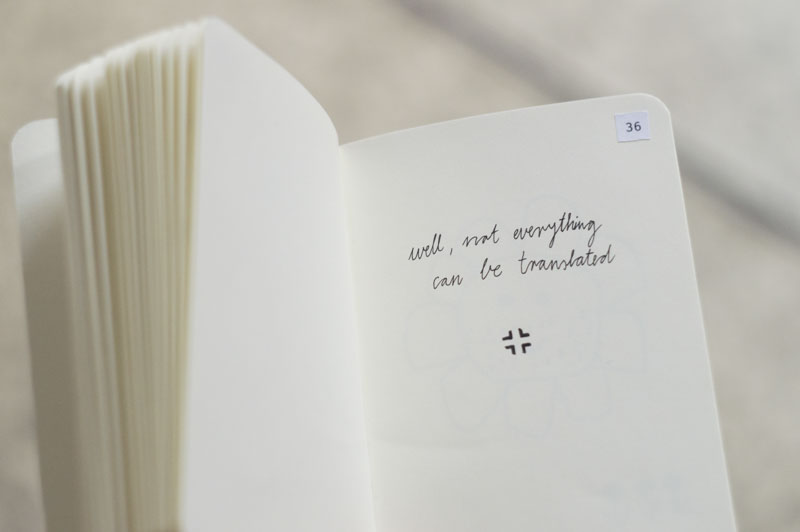 36
well, not everything
can be translated